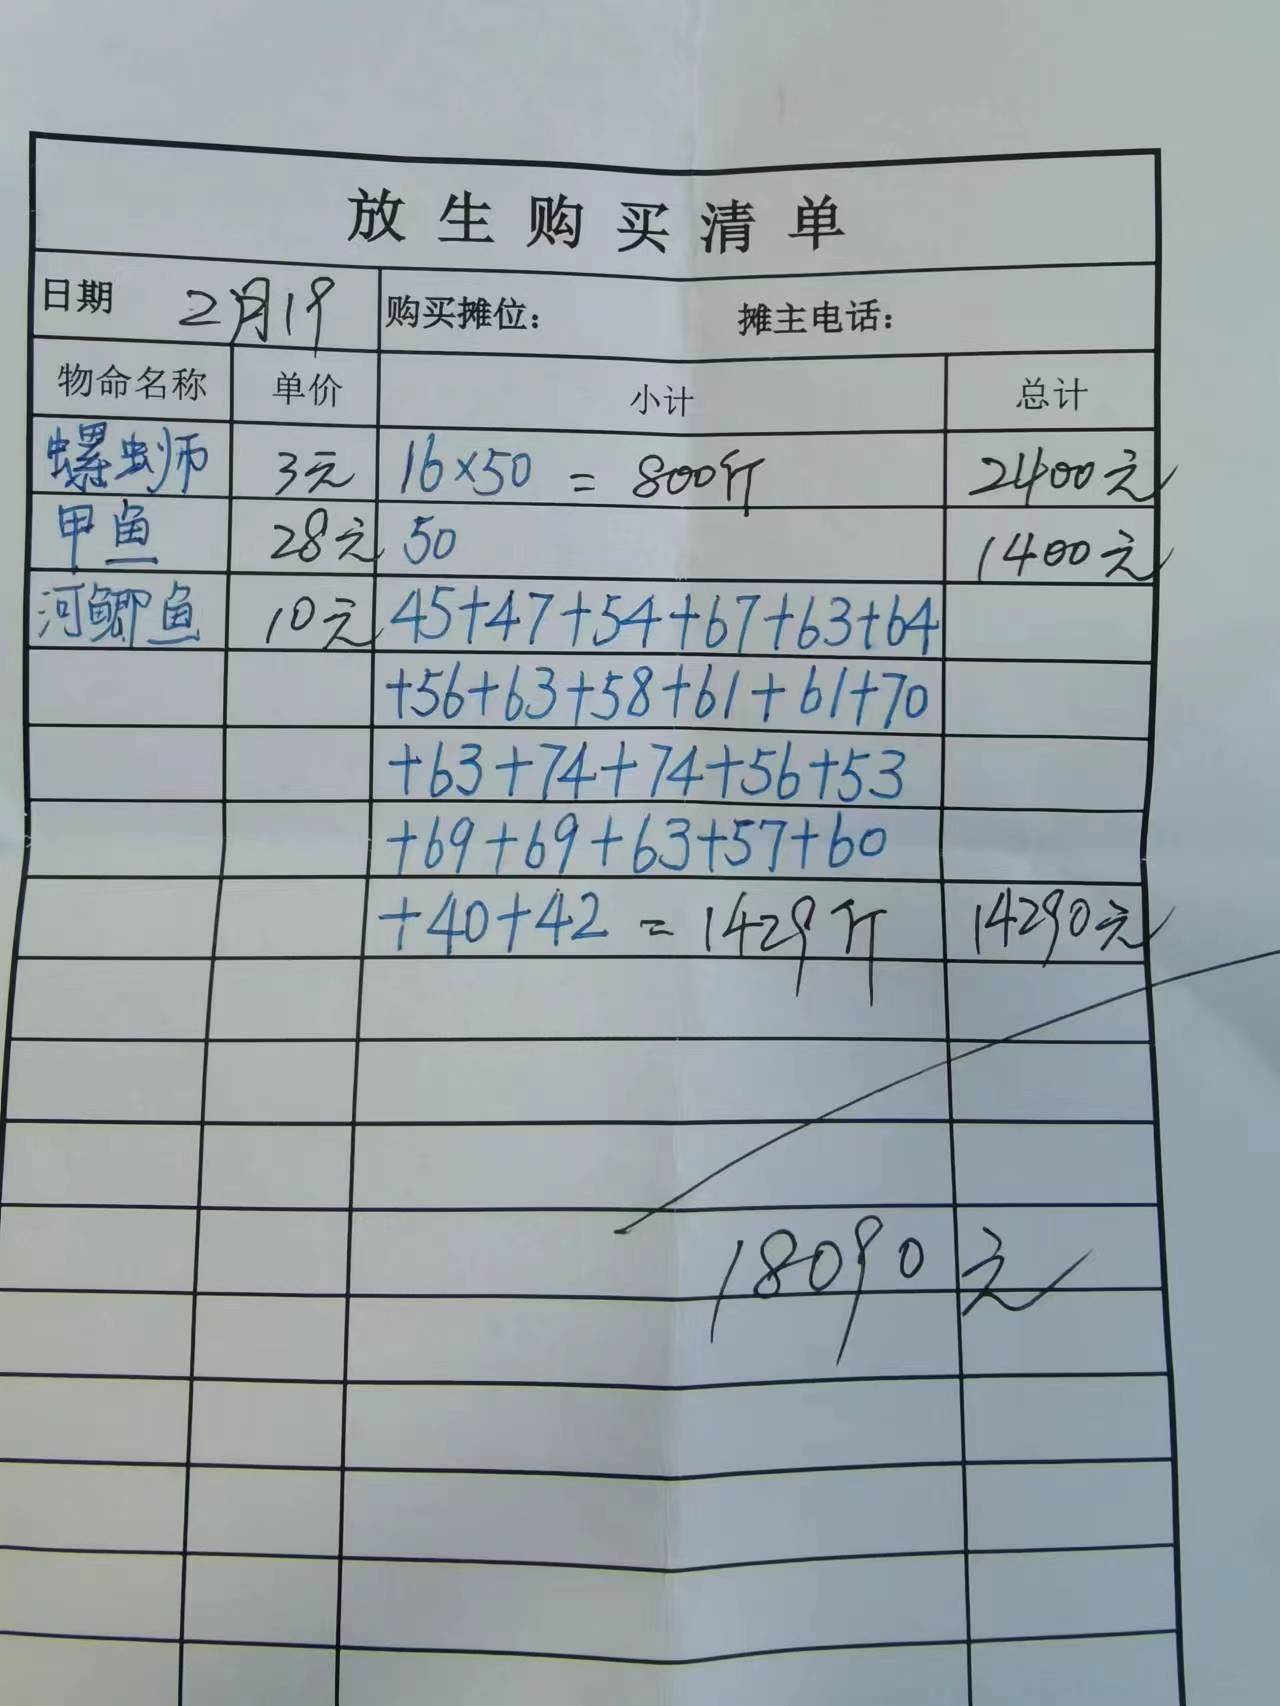 放生购买清单
日期 2月19 购买摊位: 摊主电话:
物命名称 单价 小计 总计
螺蛳 3元 16×50 = 800斤 2400元
甲鱼 28元 50 1400元
河鲫鱼 10元 45+47+54+67+63+64
+56+63+58+61+61+70
+63+74+74+56+53
+69+69+63+57+60
+40+42 = 1429斤 14290元
18090元